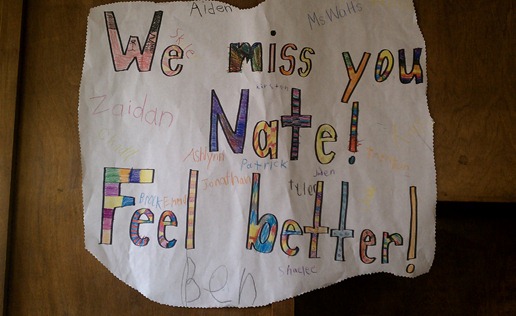 Aiden
Ms Watts
Kyle
We miss you
Kirsten
Zaidan
Nate!
Ashlynn
Patrick
Jonathan
Tyler
Brock
Emma
Feel better!
Ben